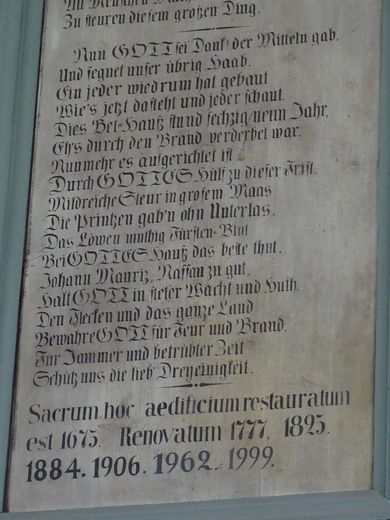 Zu steuren diesem großen Ding.
Nun GOTT sei Dank, der Mitteln gab,
Und segnet unser übrig Haab.
Ein jeder wiedrum hat gebaut
Wie's jetzt dasteht und jeder schaut.
Dies Bet-Hauß stund sechzig neun Jahr,
Eh's durch den Brand verderbet war.
Nunmehr es aufgerichtet ist
Durch GOTTES Hülf zu dieser Frist.
Mildreiche Steur in großem Maas
Die Printzen gab'n ohn Unterlas.
Das Löwen muthig Fürsten-Blut
Bei GOTTES Hauß das beste thut.
Johann Mauritz, Nassau zu gut,
Halt GOTT in steter Wacht und Huth.
Den Flecken und das ganze Land
Bewahre GOTT für Feur und Brand.
Für Jammer und betrübter Zeit
Schütz uns die lieb' Dreyeinigkeit.
Sacrum hoc aedificium restauratum
est 1675. Renovatum 1777, 1825.
1884. 1906. 1962. 1999.